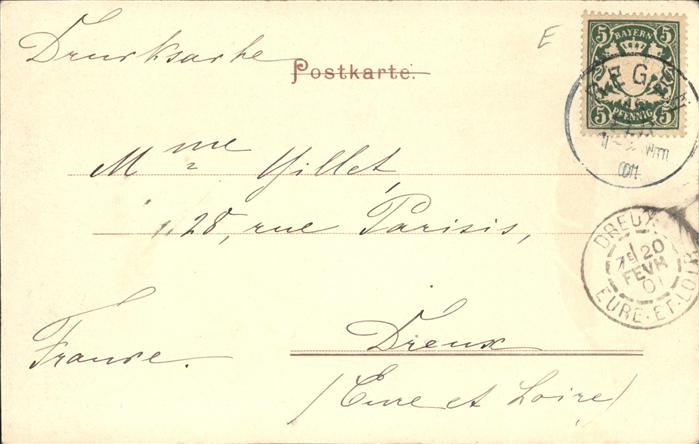 Drucksache
Postkarte.
E
5 BAYERN 5
5 PFENNIG 5
M me Gillet,
28, rue Parisis,
DREUX
7E 20
FEVR
01
EURE-ET-LOIR
France.
Dreux
(Eure et Loire)